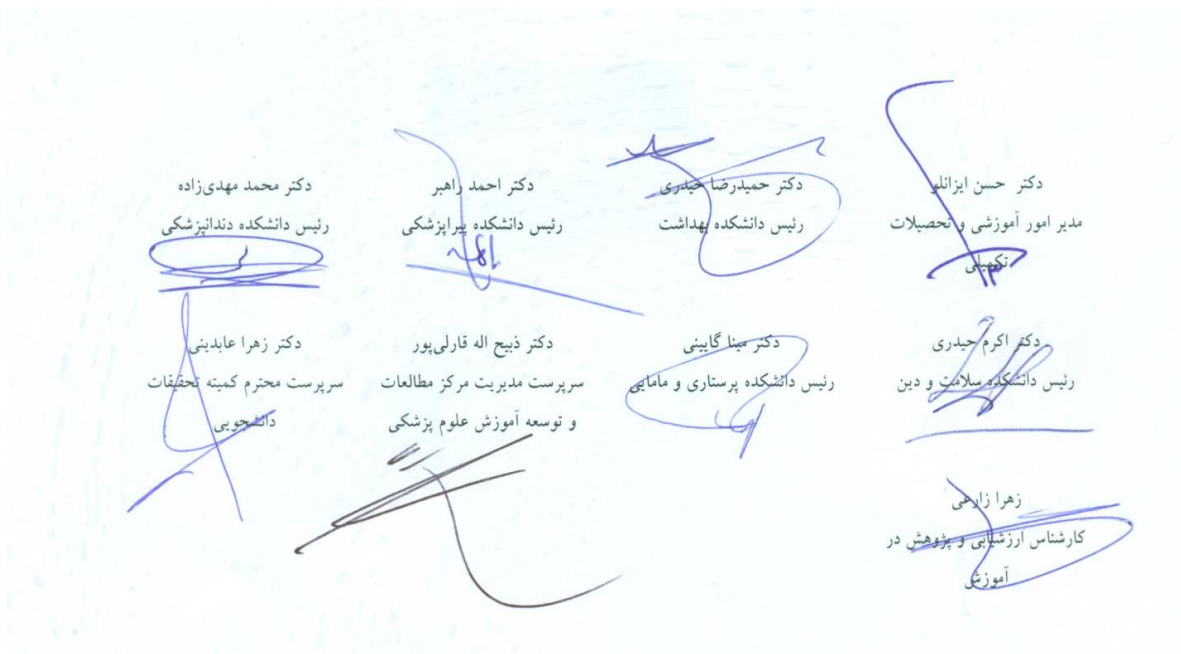 دکتر حسن ایزانلو
مدیر امور آموزشی و تحصیلات
تکمیلی
دکتر حمیدرضا حیدری
رئیس دانشکده بهداشت
دکتر احمد راهبر
رئیس دانشکده پیراپزشکی
دکتر محمد مهدی‌زاده
رئیس دانشکده دندانپزشکی
دکتر اکرم حیدری
رئیس دانشکده سلامت و دین
دکتر مینا گایینی
رئیس دانشکده پرستاری و مامایی
دکتر ذبیح اله قارلی‌پور
سرپرست مدیریت مرکز مطالعات
و توسعه آموزش علوم پزشکی
دکتر زهرا عابدینی
سرپرست محترم کمیته تحقیقات
دانشجویی
زهرا زارعی
کارشناس ارزشیابی و پژوهش در
آموزش